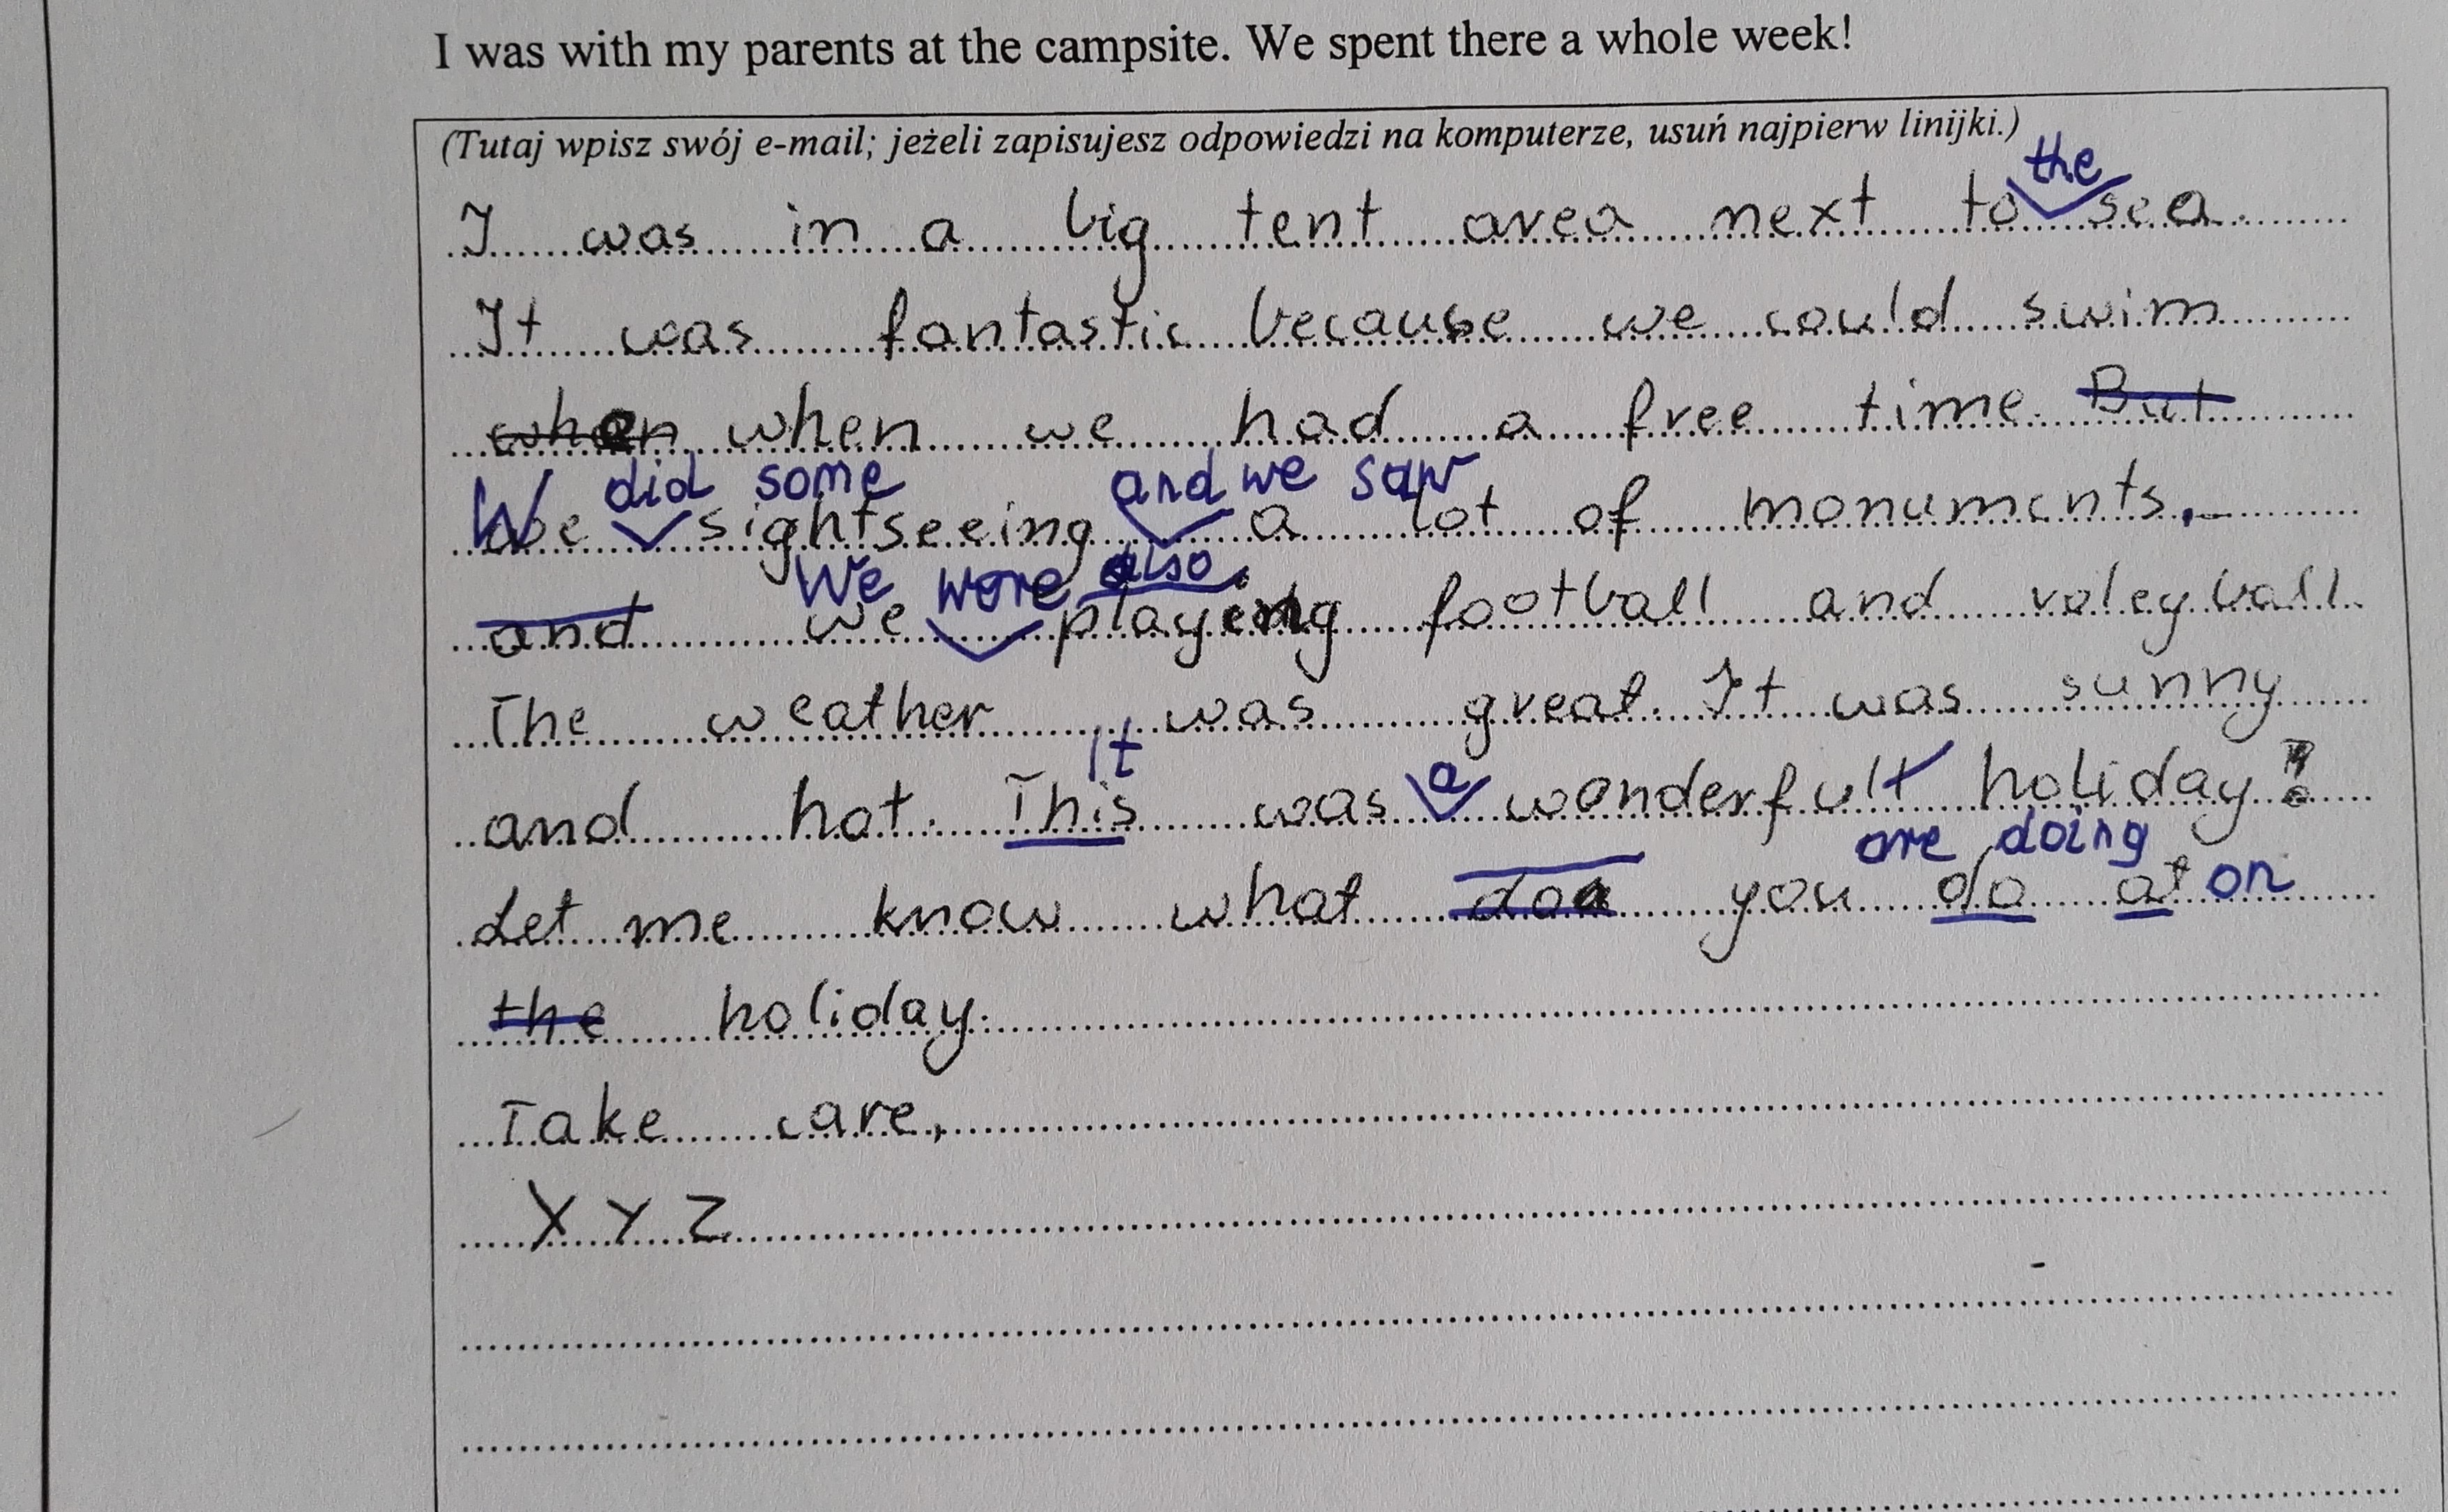 I was with my parents at the campsite. We spent there a whole week!
(Tutaj wpisz swój e-mail; jeżeli zapisujesz odpowiedzi na komputerze, usuń najpierw linijki.)
the
I was in a big tent area next to sea.
It was fantastic because we could swim
when when we had a free time. But
did some and we saw
We sightseeing a lot of monuments.
We were also
and we playing football and voleyball.
The weather was great. It was sunny
It a
and hot. This was wonderfull holiday!
are doing
Let me know what you do at on
the holiday.
Take care,
XYZ